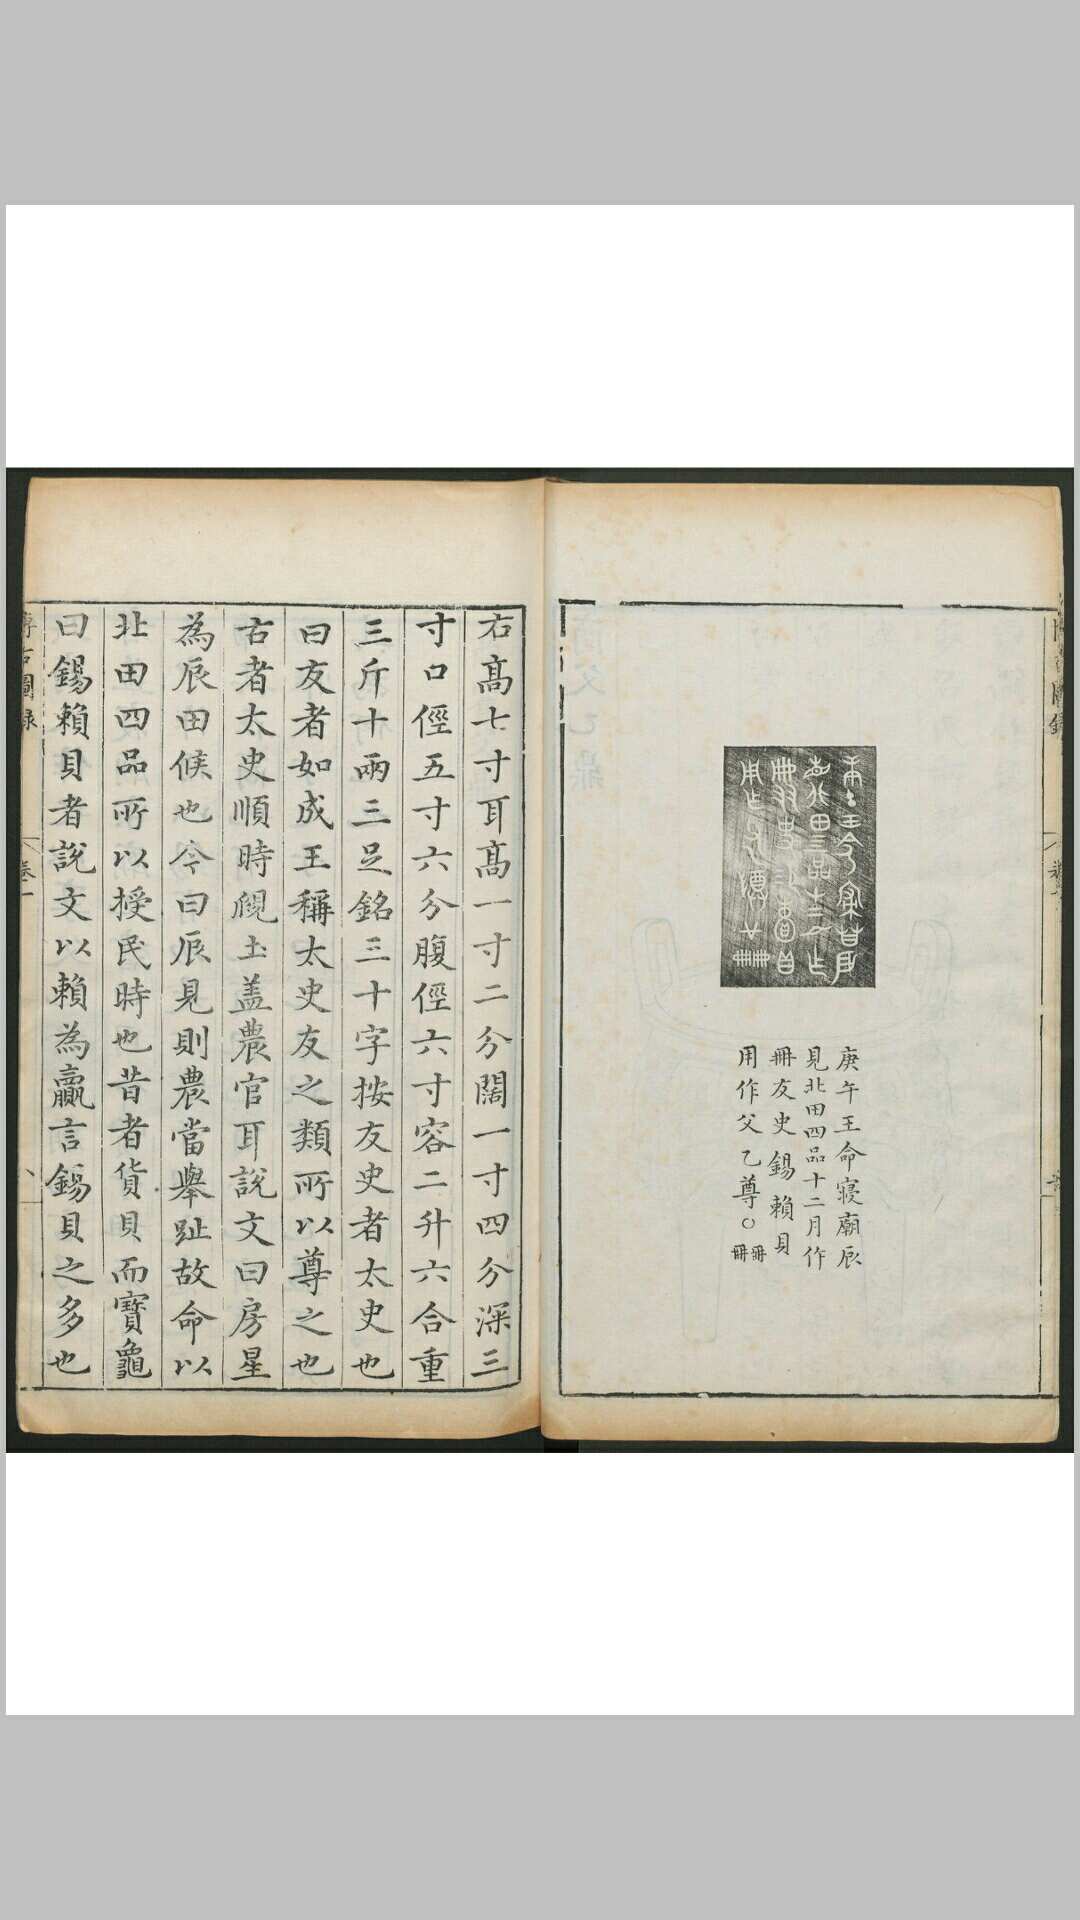 庚午王命寝廟辰
見北田四品十二月作
冊友史錫賴貝
用作父乙尊○冊冊
右髙七寸耳髙一寸二分闊一寸四分深三
寸口徑五寸六分腹徑六寸容二升六合重
三斤十兩三足銘三十字按友史者太史也
曰友者如成王稱太史友之類所以尊之也
古者太史順時覛土盖農官耳説文曰房星
為辰田候也今曰辰見則農當舉趾故命以
北田四品所以授民時也昔者貨貝而寳龜
曰錫賴貝者説文以賴為贏言錫貝之多也
博古圖録
卷一
八